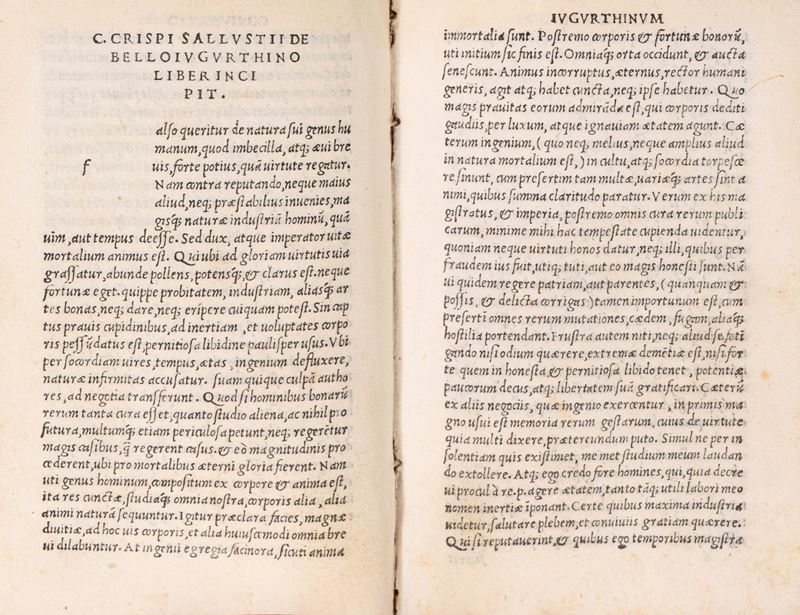 C. CRISPI SALLVSTII DE
BELLO IVGVRTHINO
LIBER INCI
PIT.
f
also queritur de natura sui genus hu
manum, quod imbecilla, atq; æui bre
uis, forte potius, quã uirtute regatur.
Nam contra reputando, neque maius
aliud, neq; præstabilius inuenies, ma
gisq; naturæ industriã hominũ, quã
uim, aut tempus deesse. Sed dux, atque imperator uitæ
mortalium animus est. Qui ubi ad gloriam uirtutis uia
grassatur, abunde pollens, potensq;, & clarus est. neque
fortunæ eget. quippe probitatem, industriam, aliasq; ar
tes bonas, neq; dare, neq; eripere cuiquam potest. Sin cap
tus prauis cupidinibus, ad inertiam, et uoluptates corpo
ris pessũdatus est, pernitiosa libidine paulisper usus. Vbi
per socordiam uires, tempus, ætas, ingenium defluxere,
naturæ infirmitas accusatur. suam quique culpã autho
res, ad negotia transferunt. Quod si hominibus bonarũ
rerum tanta cura esset, quanto studio aliena, ac nihil pro
futura, multumq; etiam periculosa petunt, neq; regerẽtur
magis casibus, q̃ regerent casus. & eò magnitudinis pro
cederent, ubi pro mortalibus æterni gloria fierent. Nam
uti genus hominum, compositum ex corpore & anima est,
ita res cunctæ, studiaq; omnia nostra, corporis alia, alia
animi naturã sequuntur. Igitur præclara facies, magnæ
diuitiæ, ad hoc uis corporis, et alia huiuscemodi omnia bre
ui dilabuntur. At ingenii egregia facinora, sicuti anima
IVGVRTHINVM
immortalia sunt. Postremo corporis & fortunæ bonorũ,
uti initium sic finis est. Omniaq; orta occidunt, & aucta
senescunt. Animus incorruptus, æternus, rector humani
generis, agit atq; habet cuncta, neq; ipse habetur. Quo
magis prauitas eorum admirãda est, qui corporis dediti
gaudiis, per luxum, atque ignauiam ætatem agunt. Cæ
terum ingenium, (quo neq; melius, neque amplius aliud
in natura mortalium est,) in cultu, atq; socordia torpesce
re sinunt, cum presertim tam multæ, uariæq; artes sint a
nimi, quibus summa claritudo paratur. Verum ex his ma
gistratus, & imperia, postremo omnis cura rerum publi
carum, minime mihi hac tempestate cupienda uidentur,
quoniam neque uirtuti honos datur, neq; illi, quibus per
fraudem ius fuit, utiq; tuti, aut eo magis honesti sunt. Nã
ui quidem regere patriam, aut parentes, (quanquam &
possis, & delicta corrigas) tamen importunum est, cum
preserti omnes rerum mutationes, cædem, fugam, aliaq;
hostilia portendant. Frustra autem niti, neq; aliud se fati
gando nisi odium quærere, extremæ demẽtiæ est, nisi for
te quem inhonesta, & pernitiosa libido tenet, potentiæ
paucorum decus, atq; libertatem suã gratificari. Cæterũ
ex aliis negociis, quæ ingenio exercentur, in primis ma
gno usui est memoria rerum gestarum, cuius de uirtute
quia multi dixere, prætereundum puto. Simul ne per in
solentiam quis existimet, me met studium meum laudan
do extollere. Atq; ego credo fore homines, qui, quia decre
ui procul à re. p. agere ætatem, tanto tãq; utili labori meo
nomen inertiæ ĩponant. Certe quibus maxima industria
uidetur, salutare plebem, et conuiuiis gratiam quærere.
Qui si reputauerint, & quibus ego temporibus magistra